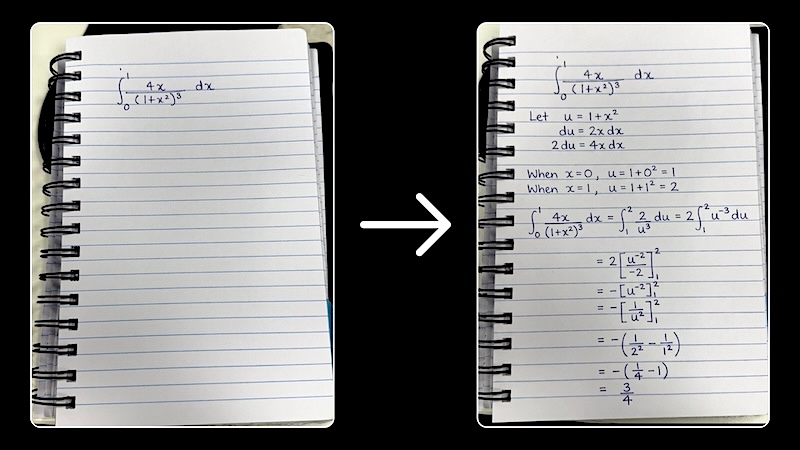 ∫₀¹ 4x/(1+x²)³ dx
∫₀¹ 4x/(1+x²)³ dx
Let u = 1+x²
du = 2x dx
2 du = 4x dx
When x=0, u = 1+0² = 1
When x=1, u = 1+1² = 2
∫₀¹ 4x/(1+x²)³ dx = ∫₁² 2/u³ du = 2∫₁² u⁻³ du
= 2[u⁻²/-2]₁²
= -[u⁻²]₁²
= -[1/u²]₁²
= -(1/2² - 1/1²)
= -(1/4 - 1)
= 3/4